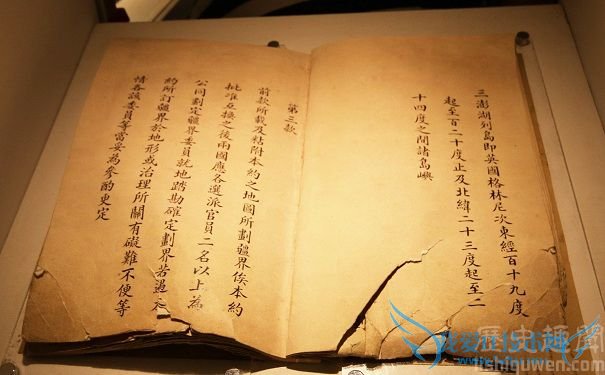 三澎湖列島即英國格林尼次東經百十九度
起至百二十度止及北緯二十三度起至二
十四度之間諸島嶼
第三款
前款所載及粘附本約之地圖所劃疆界俟本約
批准互換之後兩國應各選派官員二名以上為
公同劃定疆界委員就地踏勘確定劃界若遇本
約所訂疆界於地形或治理所關有礙難不便等
情各該委員等當妥為參酌更定
歷史趣聞
ishiquwen.com